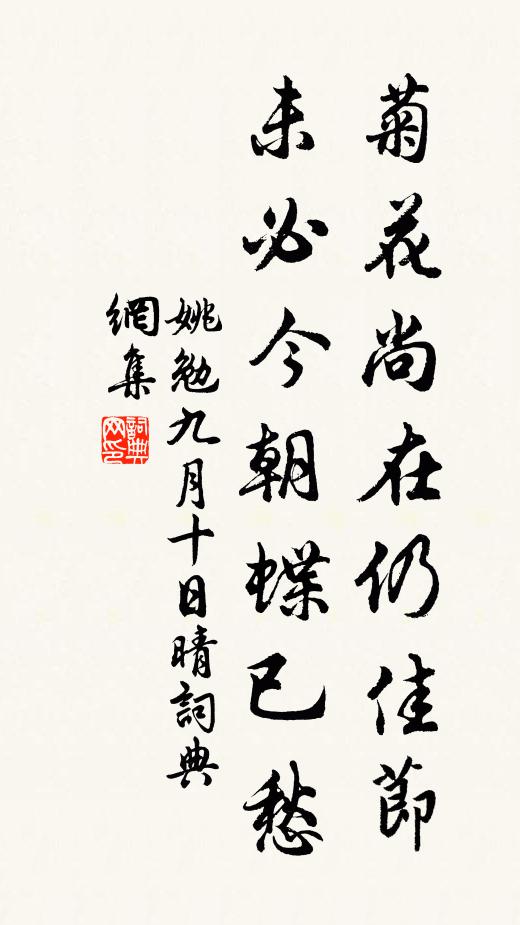 菊花尚在仍佳節
未必今朝蝶已愁
姚勉九月十日晴詞典
網集
詞典網印